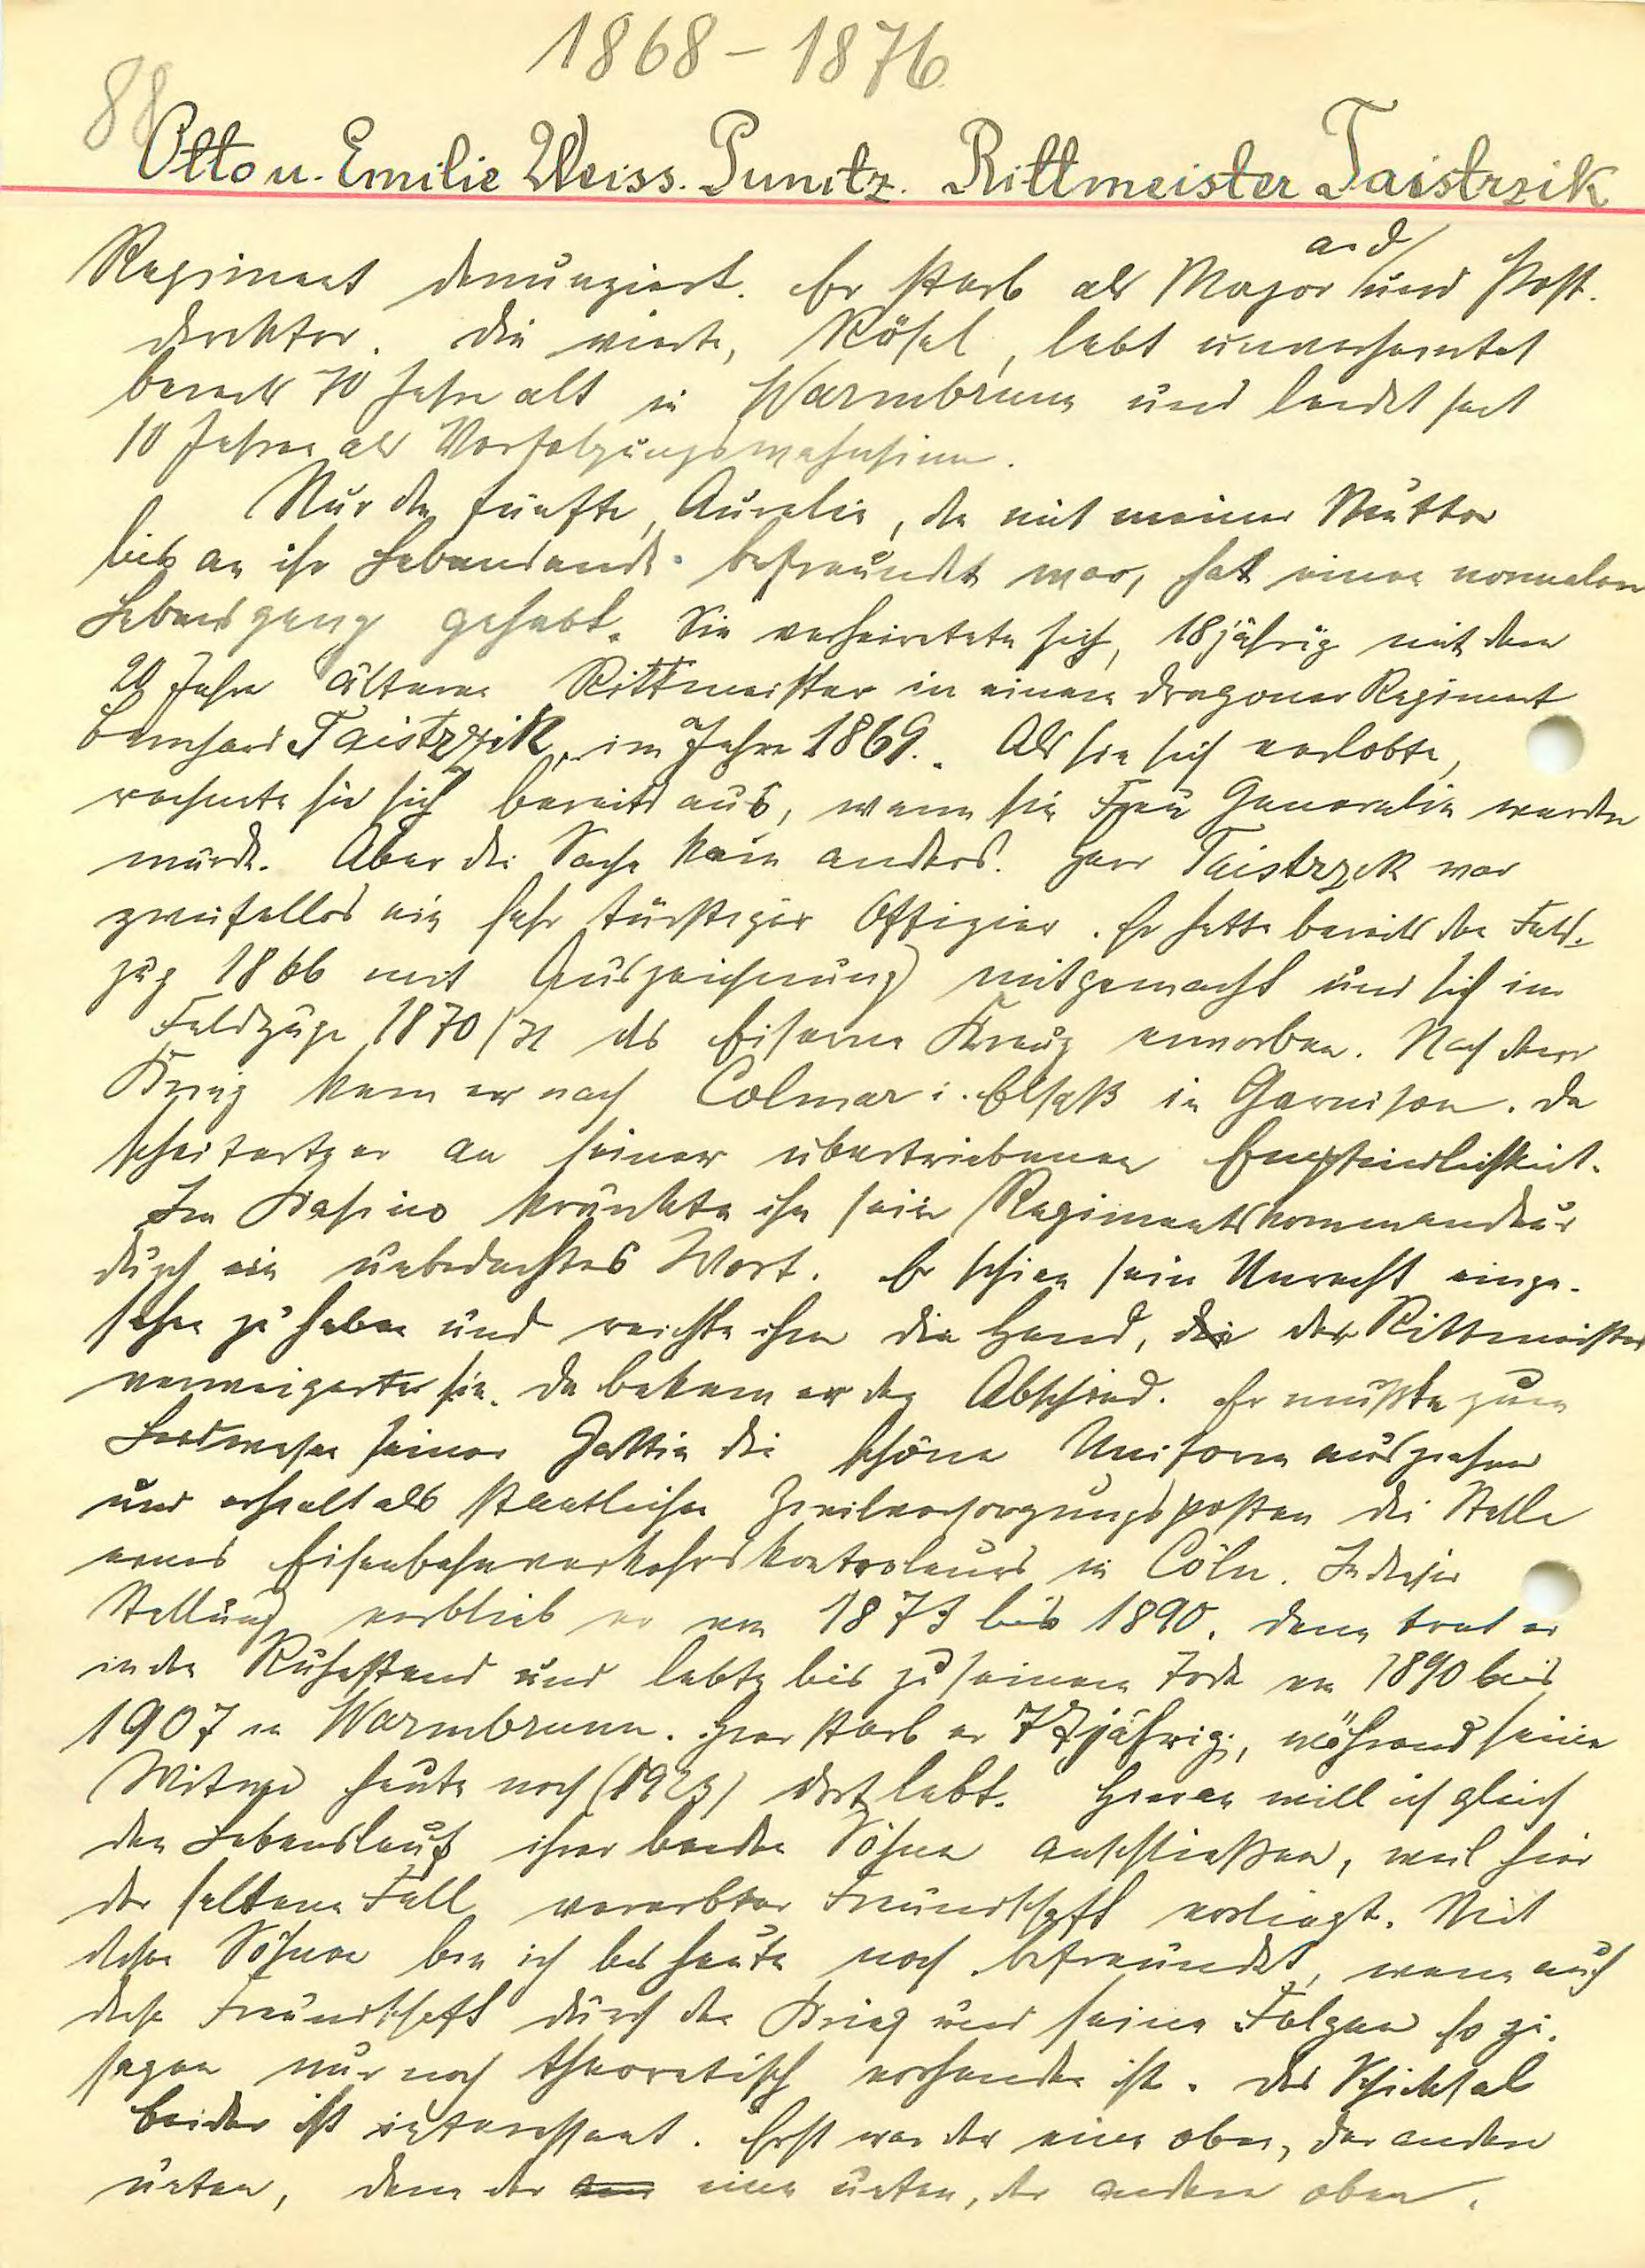 1868 – 1876
88
Otto u. Emilie Weiss. Punitz. Rittmeister Taistrzik
a. d.
Regiment denunziert. Er starb als Major und Post-
direktor. Die vierte, Rösel, lebt unverheiratet
bereits 70 Jahre alt in Warmbrunn und leidet seit
10 Jahren an Verfolgungswahnsinn.
Nur die fünfte, Aurelie, die mit meiner Mutter
bis an ihr Lebensende befreundet war, hat einen normalen
Lebensgang gehabt. Sie verheiratete sich, 18jährig mit dem
20 Jahre älteren Rittmeister in einem Dragoner Regiment
Bernhard Taistrzik, im Jahre 1869. Als sie sich verlobte,
rechnete sie sich bereits aus, wann sie Frau Generalin werden
würde. Aber die Sache kam anders. Herr Taistrzik war
zweifellos ein sehr tüchtiger Offizier. Er hatte bereits den Feld-
zug 1866 mit Auszeichnung mitgemacht und sich im
Feldzuge 1870/71 das Eiserne Kreuz erworben. Nach dem
Krieg kam er nach Colmar i. Elsaß in Garnison. Da
scheiterte er an seiner übertriebenen Empfindlichkeit.
Im Kasino kränkte ihn sein Regimentskommandeur
durch ein unbedachtes Wort. Er schien sein Unrecht einge-
sehen zu haben und reichte ihm die Hand, die der Rittmeister
verweigerte sie. Da bekam er den Abschied. Er mußte zum
Leidwesen seiner Gattin die schöne Uniform ausziehen
und erhielt als staatlichen Zivilversorgungsposten die Stelle
eines Eisenbahnverkehrskontroleurs in Cöln. In dieser
Stellung verblieb er von 1873 bis 1890. Dann trat er
in den Ruhestand und lebte bis zu seinem Tode von 1890 bis
1907 in Warmbrunn. Hier starb er 77jährig, während seine
Witwe heute noch (1923) dort lebt. Hieran will ich gleich
den Lebenslauf ihrer beiden Söhne anschließen, weil hier
der seltene Fall vererbter Freundschaft vorliegt. Mit
diesen Söhnen bin ich bis heute noch befreundet, wenn auch
diese Freundschaft durch den Krieg und seine Folgen so zu-
sagen nur noch theoretisch vorhanden ist. Das Schicksal
beider ist interessant. Erst war der eine oben, der andere
unten, dann der eine unten, der andere oben.